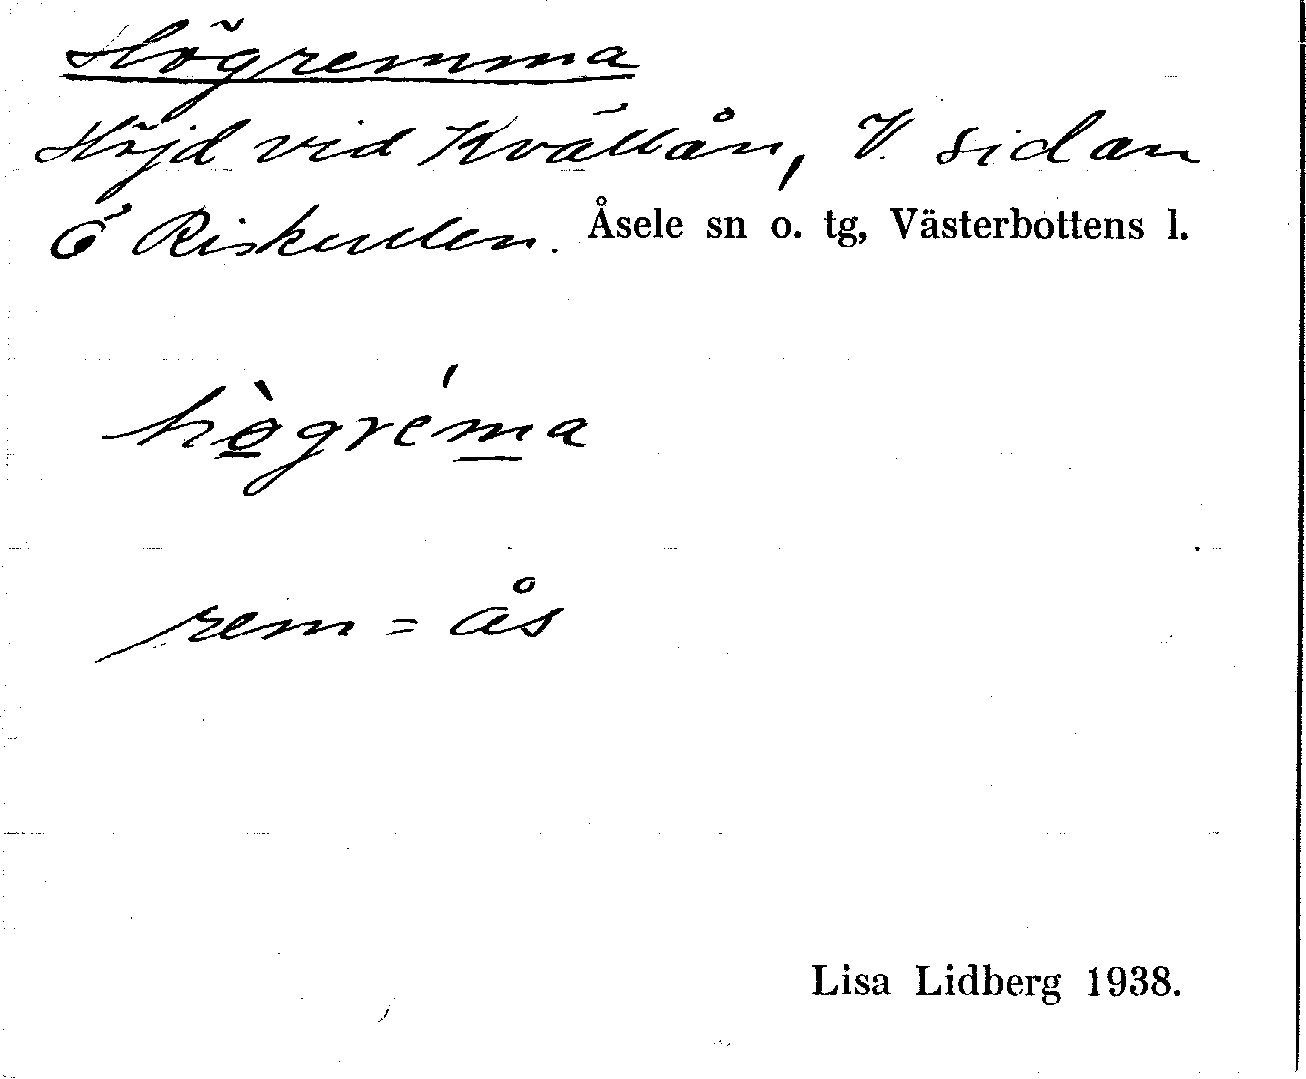 Högremma
Höjd vid Kvällån, V. sidan
Ö Riskullen. Åsele sn o. tg, Västerbottens l.
hògréma
rem = ås
Lisa Lidberg 1938.